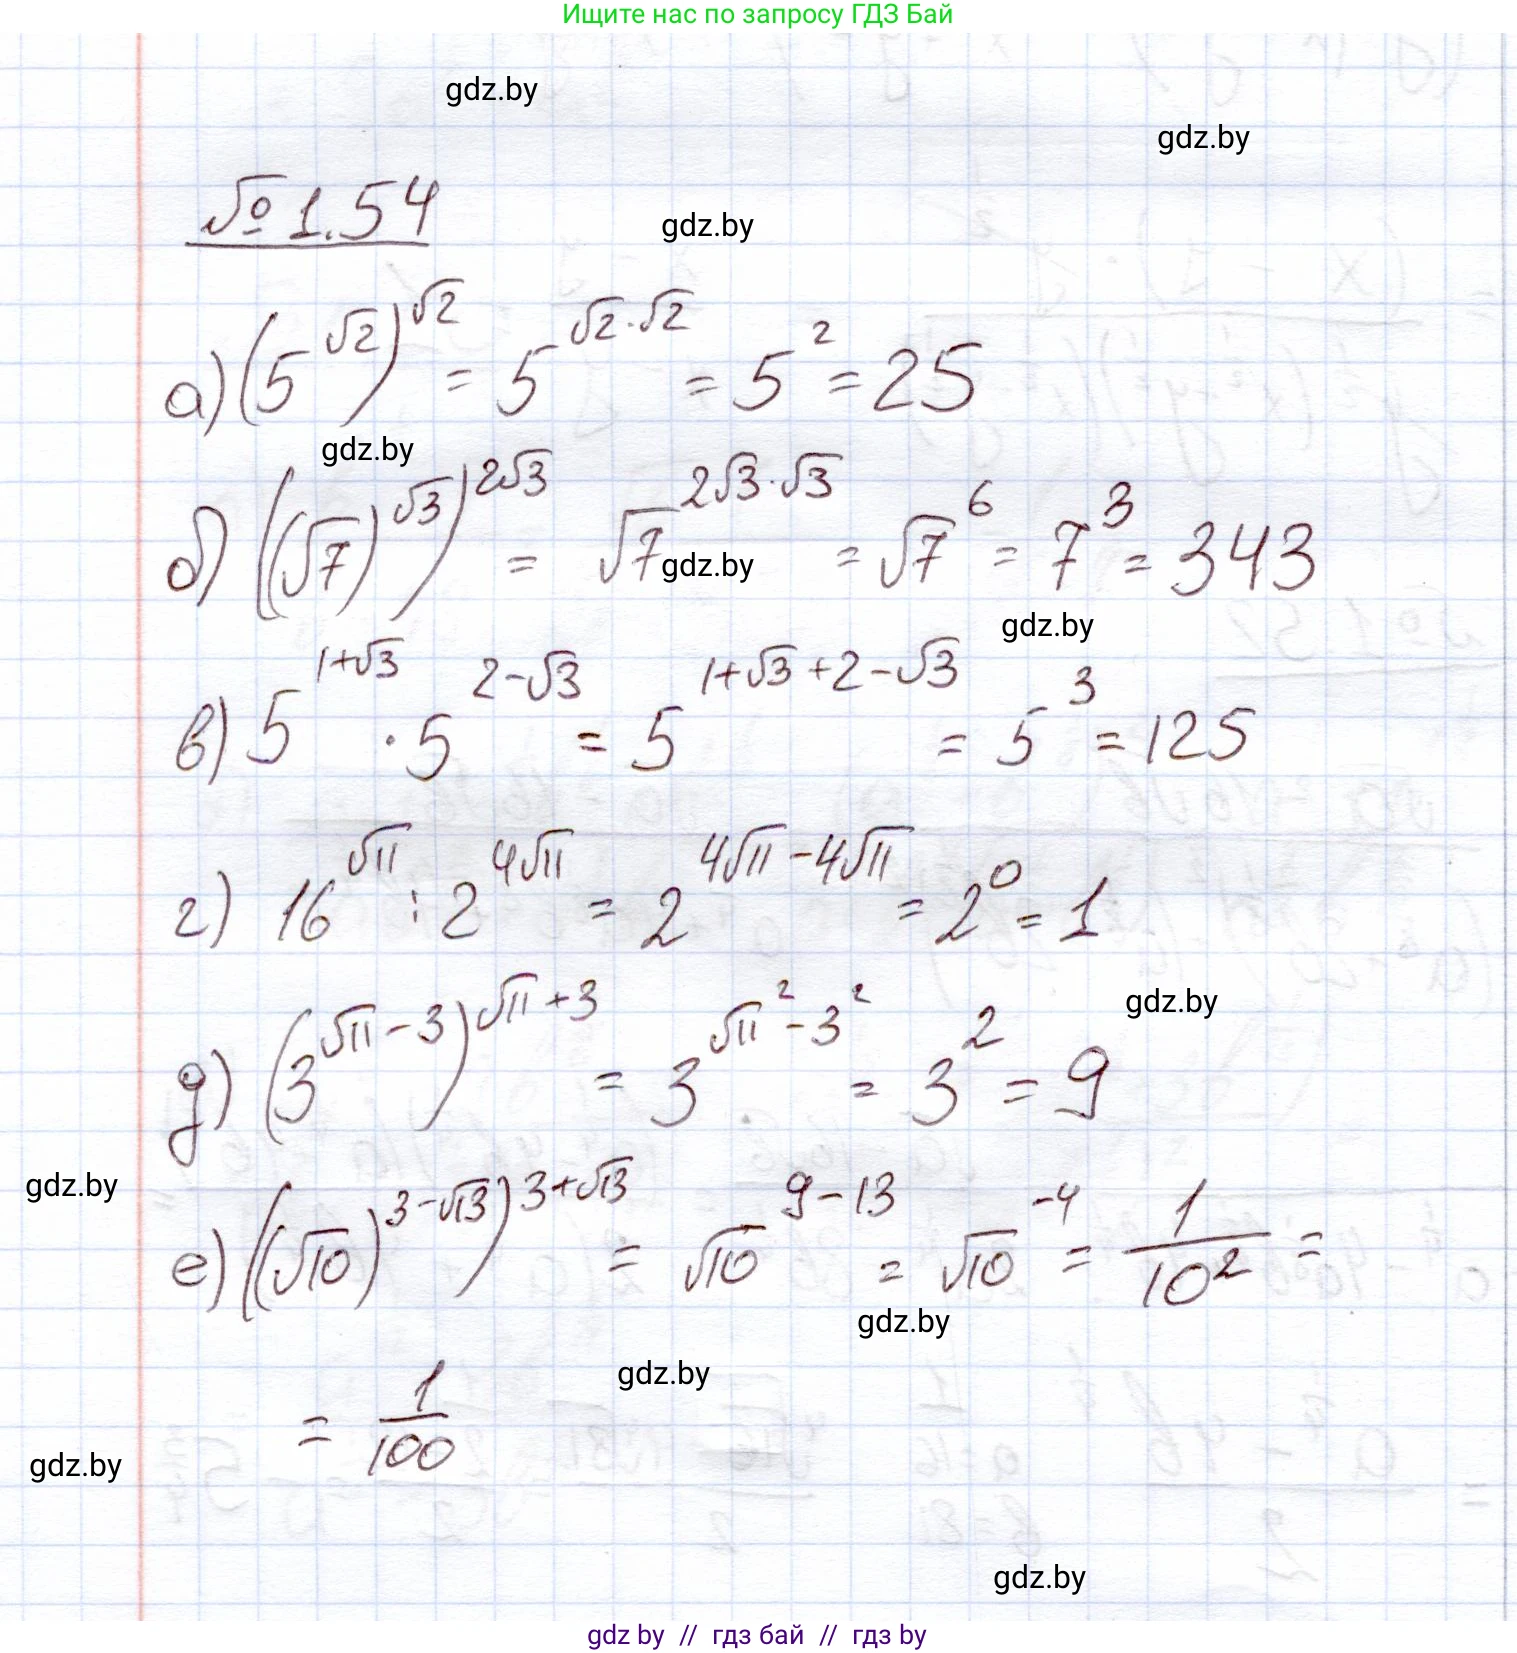 Ищите нас по запросу ГДЗ Бай
gdz.by
gdz.by
№ 1.54
gdz.by
а) (5^√2)^√2 = 5^(√2·√2) = 5² = 25
gdz.by
б) ((√7)^√3)^(2√3) = √7^(2√3·√3) = √7⁶ = 7³ = 343
gdz.by
gdz.by
в) 5^(1+√3) · 5^(2-√3) = 5^(1+√3+2-√3) = 5³ = 125
г) 16^√11 : 2^(4√11) = 2^(4√11-4√11) = 2⁰ = 1
gdz.by
д) (3^(√11-3))^(√11+3) = 3^(√11²-3²) = 3² = 9
gdz.by
е) ((√10)^(3-√13))^(3+√13) = √10^(9-13) = √10^(-4) = 1/10² =
gdz.by
gdz.by
= 1/100
gdz.by
gdz.by
gdz by // гдз бай // гдз by